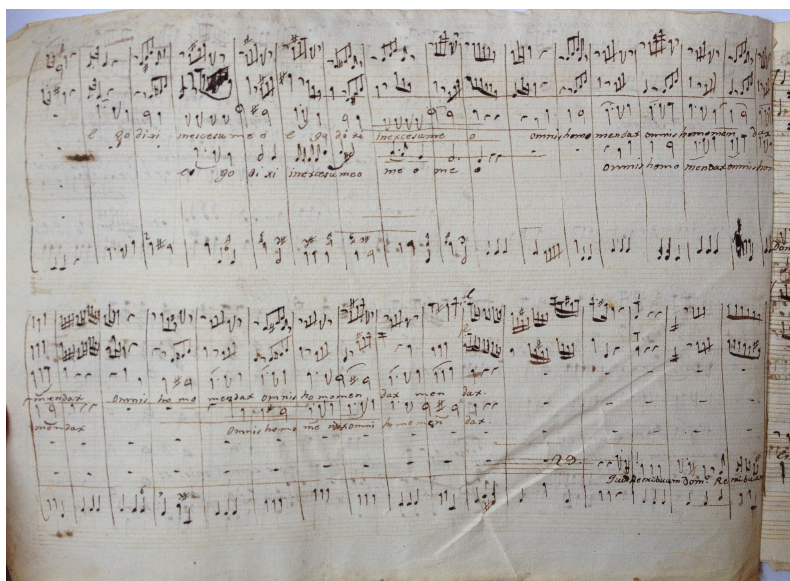 e go dixi inexcesu me o e go dixi inexcesu me o omnis homo mendax omnis homo men dax
e go di xi inexcesu meo me o me o omnis homo mendax omnis hom
mendax omnis ho mo mendax omnis ho mo men dax men dax.
mendax omnis homo me omnis homo men dax.
Quid Retribuam Domº Retribuam